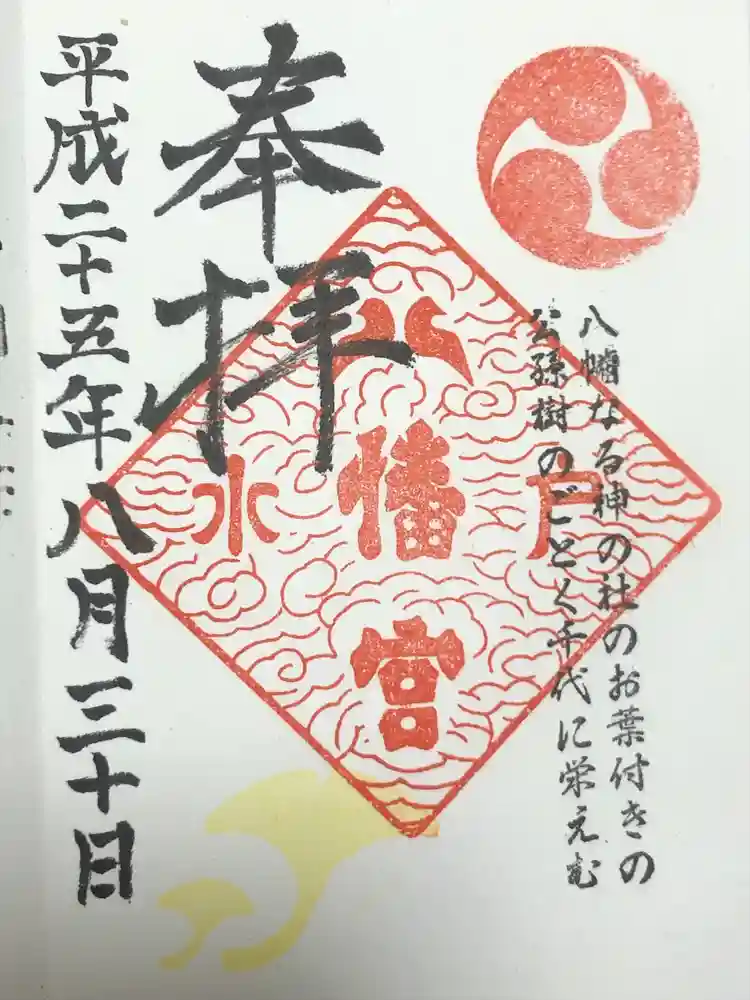 八幡なる神の社のお葉付きの
公孫樹のごとく千代に栄えむ
水戸
八幡宮
奉拝
平成二十五年八月三十日